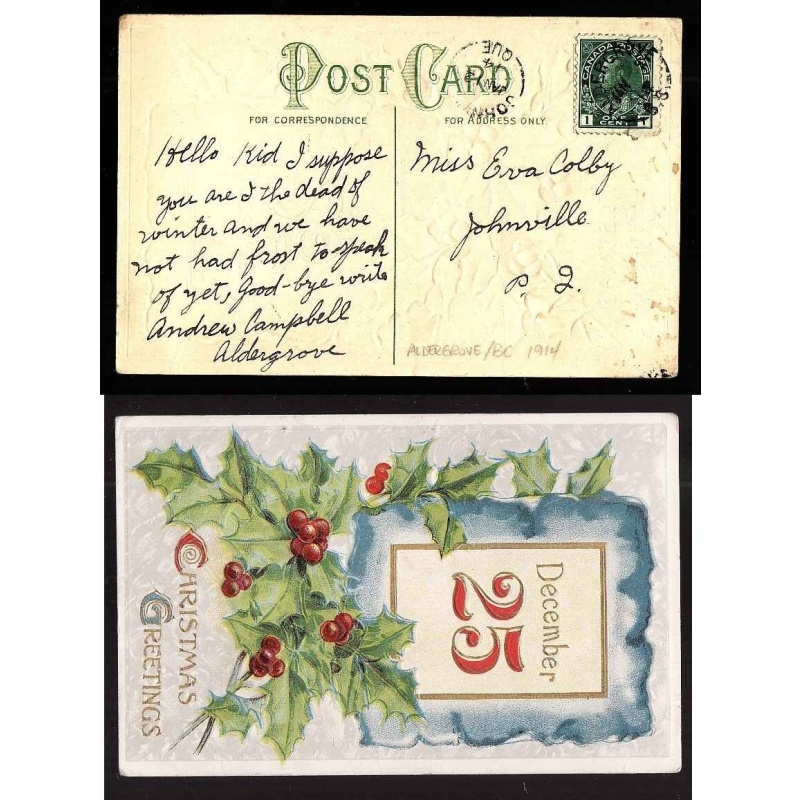 POST CARD
FOR CORRESPONDENCE
FOR ADDRESS ONLY
Hello Kid I suppose
you are I the dead of
winter and we have
not had frost to speak
of yet, Good-bye write
Andrew Campbell
Aldergrove
Miss Eva Colby
Johnville
P Q.
ALDERGROVE/BC 1914
CANADA POSTAGE
1 ONE CENT 1
QUE
14
CHRISTMAS
GREETINGS
December
25